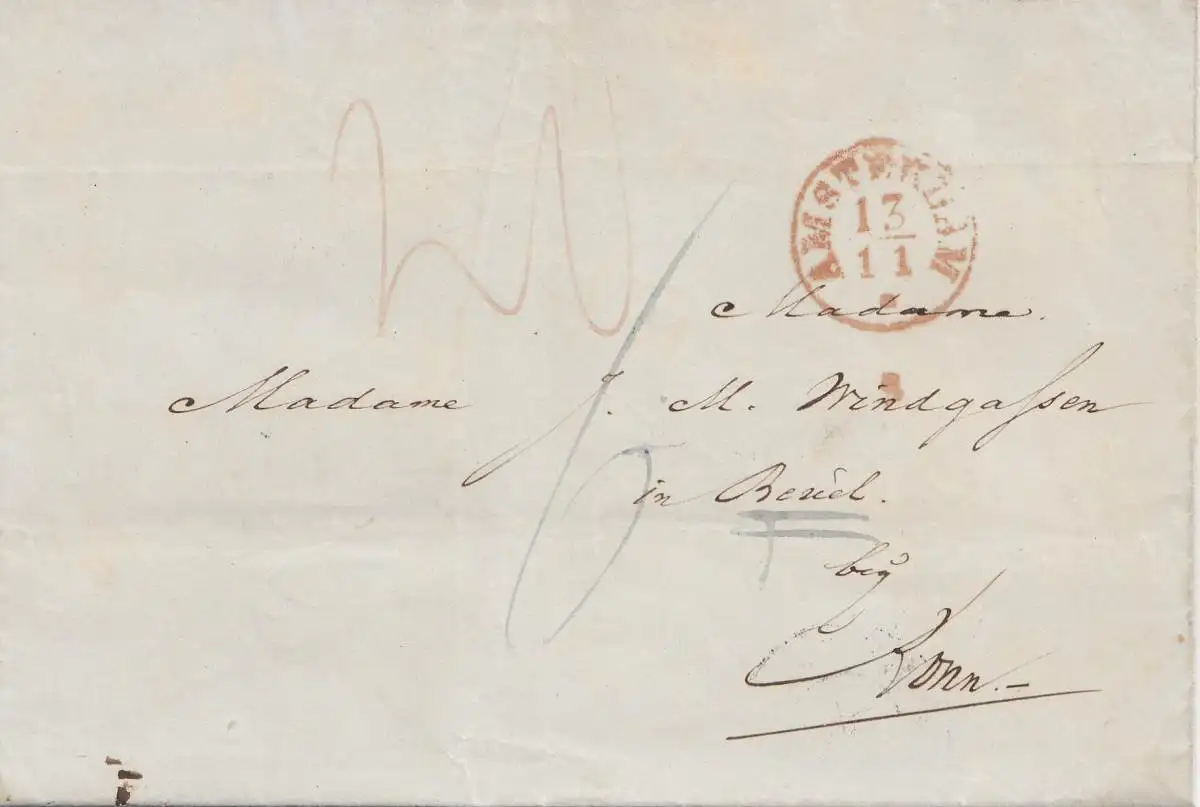 AMSTERDAM
13
11
Madame.
Madame J. M. Windgaſsen
in Beuel.
bey
Bonn.—